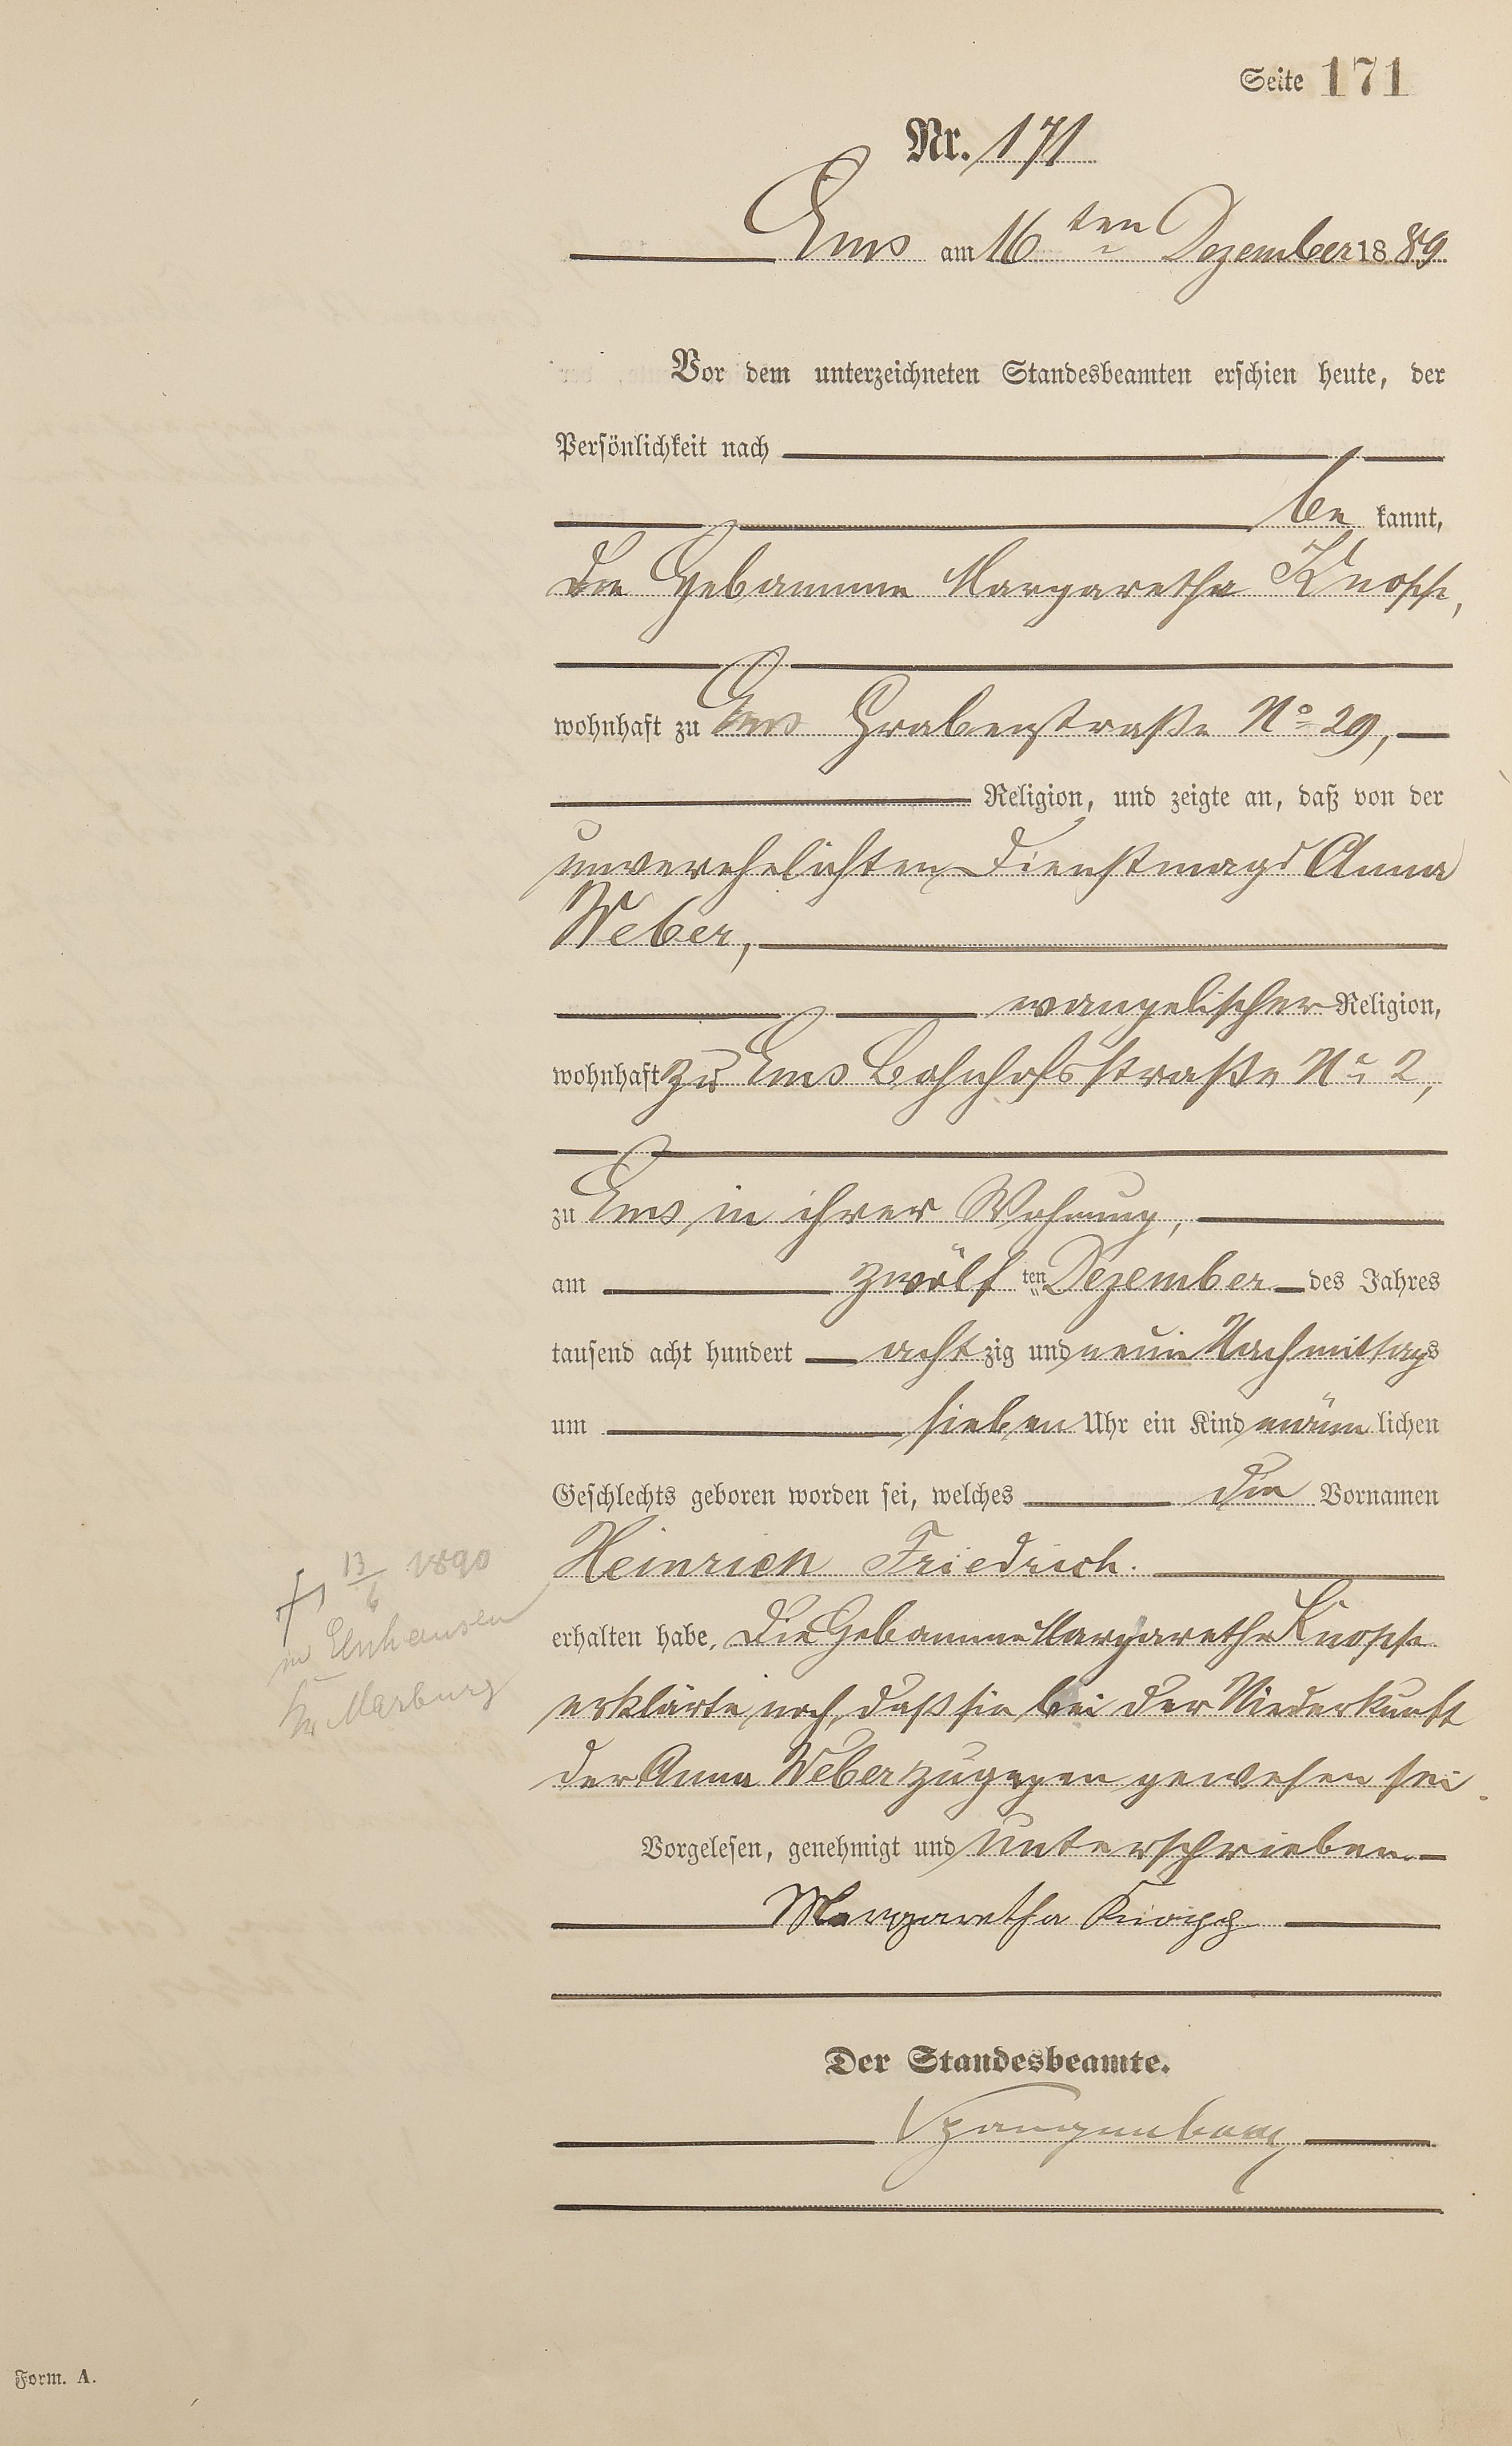 Seite 171
Nr. 171
Ems am 16ten Dezember 1889
Vor dem unterzeichneten Standesbeamten erschien heute, der
Persönlichkeit nach
be kannt,
die Hebamme Margaretha Knopp,
wohnhaft zu Ems Grabenstraße No 29,
Religion, und zeigte an, daß von der
unverehelichten Dienstmagd Anna
Weber,
evangelischer Religion,
wohnhaft zu Ems Bahnhofsstraße No 2,
zu Ems in ihrer Wohnung,
am zwölf ten Dezember des Jahres
tausend acht hundert acht zig und neun Nachmittags
um sieben Uhr ein Kind männ lichen
Geschlechts geboren worden sei, welches die Vornamen
Heinrich Friedrich.
† 13/6 1890
in
Kr Marburg
erhalten habe. Die Hebamme Margaretha Knopp
erklärte noch, daß sie bei der Niederkunft
der Anna Weber zugegen gewesen sei.
Vorgelesen, genehmigt und unterschrieben.
Margaretha Knopp
Der Standesbeamte.
Spangenberg
Form. A.